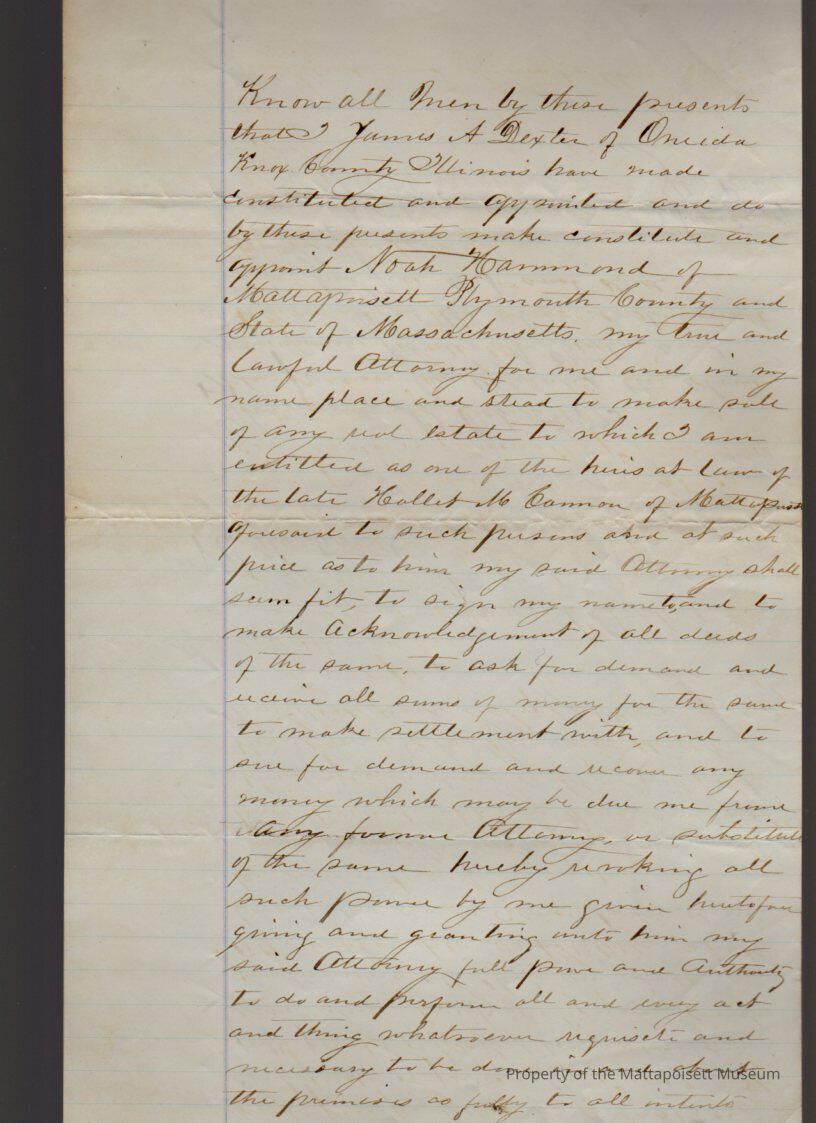 Know all Men by these presents
that I James A Dexter of Oneida
Knox County Illinois have made
constituted and appointed and do
by these presents make constitute and
appoint Noah Hammond of
Mattapoisett Plymouth County and
State of Massachusetts. my true and
lawful Attorney for me and in my
name place and stead to make sale
of any real estate to which I am
entitled as one of the heirs at law of
the late Hallet M Cannon of Mattapoisett
aforesaid to such persons and at such
price as to him my said Attorney shall
seem fit, to sign my name to, and to
make Acknowledgement of all deeds
of the same, to ask for demand and
receive all sums of money for the same
to make settlement with, and to
sue for demand and recover any
money which may be due me from
any former Attorney, or substitute
of the same hereby revoking all
such power by me given heretofore
giving and granting unto him my
said Attorney full power and Authority
to do and perform all and every act
and thing whatsoever requisite and
necessary to be done in and about
the premises as fully to all intents
Property of the Mattapoisett Museum